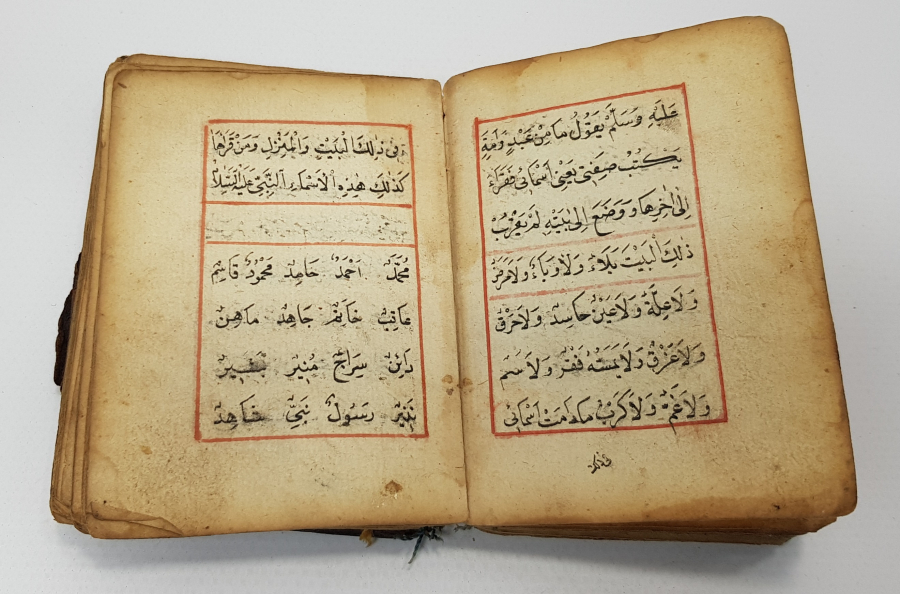 عَلَيْهِ وَسَلَّمَ يَقُولُ مَا مِنْ عَبْدٍ وَاَمَةٍ
يَكْتُبُ صِفَتِى يَعْنِى اَسْمَائِى فَقَرَاءَ
اِلٰى اٰخِرِهَا وَوَضَعَ اِلٰى بَيْتِهِ لَمْ يَقْرُبْ
ذٰلِكَ الْبَيْتَ بَلَاءٌ وَلَا وَبَاءٌ وَلَا مَرَضٌ
وَلَا عِلَّةٌ وَلَا عَيْنٌ حَاسِدٌ وَلَا حَرْقٌ
وَلَا غَرْقٌ وَلَا يَمَسُّهُ فَقْرٌ وَلَا
وَلَا غَمٌّ وَلَا كَرْبٌ مَادَامَتْ اَسْمَائِى
فى ذلك
فِى ذٰلِكَ الْبَيْتِ وَالْمَنْزِلِ وَمَنْ قَرَاَهَا
كَذٰلِكَ هٰذِهِ الْاَسْمَاءِ النَّبِىِّ عَلَيْهِ السَّلَامُ
مُحَمَّدٌ اَحْمَدُ حَامِدٌ مَحْمُودٌ قَاسِمٌ
عَاقِبٌ خَاتَمٌ جَاهِدٌ مَاهِنٌ
دَايِنٌ سِرَاجٌ مُنِيرٌ بَشِيرٌ
نَذِيرٌ رَسُولٌ نَبِىٌّ شَاهِدٌ